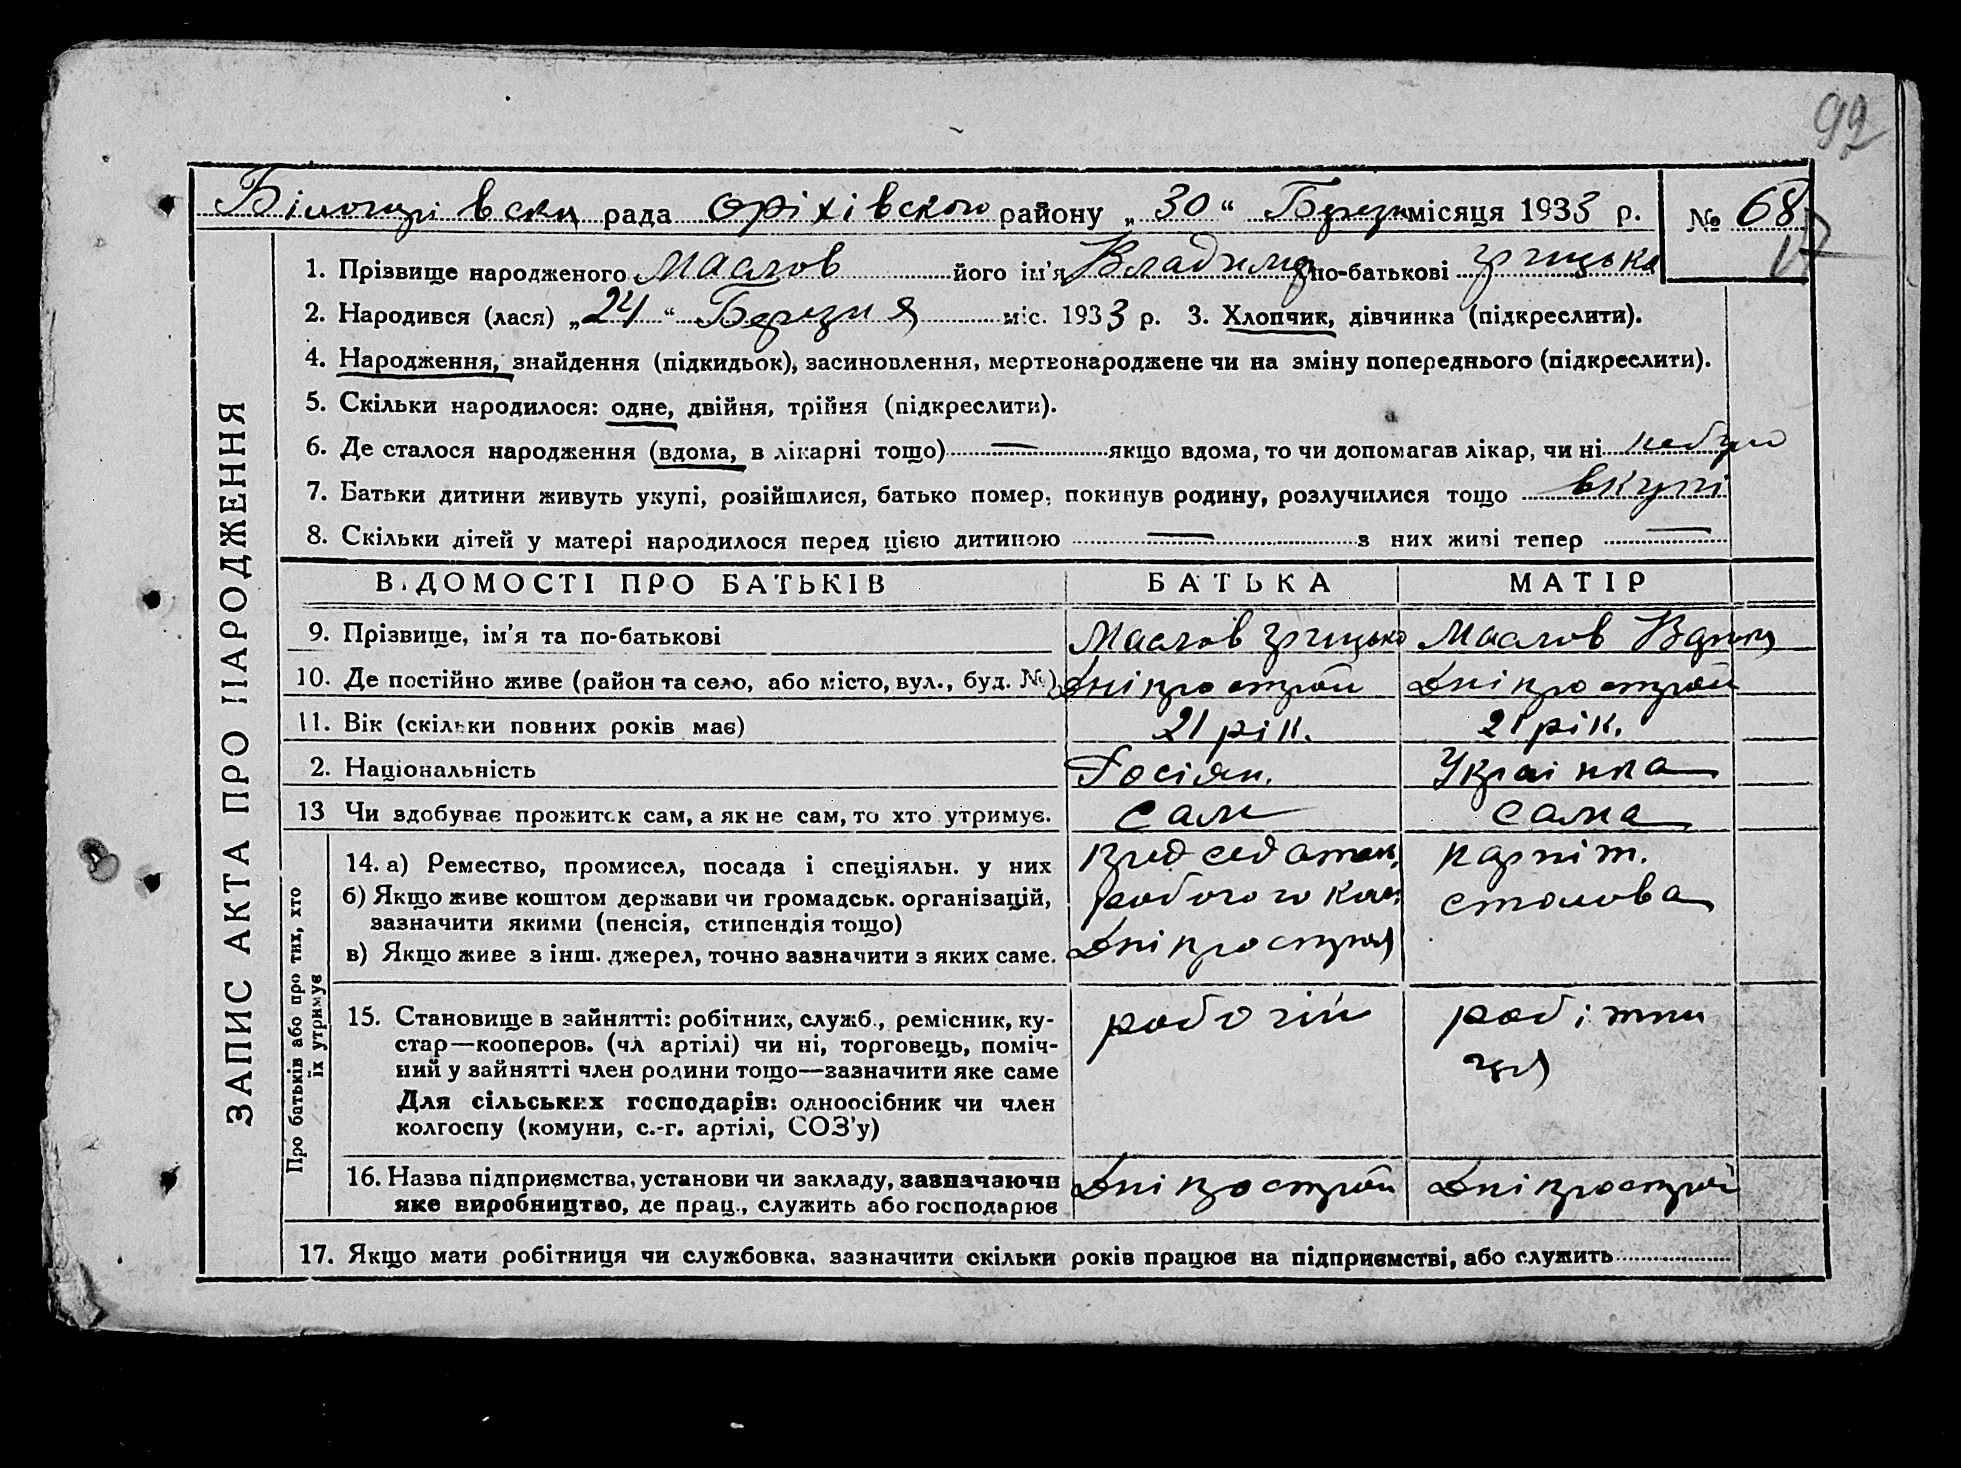 92
Білогорівська рада оріхівского району „30“ Березн місяця 1933 р. № 68
17
1. Прізвище народженого Маслов його ім'я Владимир по-батькові Грицька
2. Народився (лася) „24“ Березня міс. 1933 р. 3. Хлопчик, дівчинка (підкреслити).
4. Народження, знайдення (підкидьок), засиновлення, мертвонароджене чи на зміну попереднього (підкреслити).
5. Скільки народилося: одне, двійня, трійня (підкреслити).
6. Де сталося народження (вдома, в лікарні тощо) — якщо вдома, то чи допомагав лікар, чи ні небуло
7. Батьки дитини живуть укупі, розійшлися, батько помер, покинув родину, розлучилися тощо вкупі
8. Скільки дітей у матері народилося перед цією дитиною — з них живі тепер —
ЗАПИС АКТА ПРО НАРОДЖЕННЯ
ВІДОМОСТІ ПРО БАТЬКІВ БАТЬКА МАТІР
9. Прізвище, ім'я та по-батькові Маслов Грицько Маслов
10. Де постійно живе (район та село, або місто, вул., буд. №) Дніпрострой Дніпрострой
11. Вік (скільки повних років має) 21 рік. 21 рік.
2. Національність Росіян. Украінка
13 Чи здобуває прожиток сам, а як не сам, то хто утримує. сам сама
Про батьків або про тих, хто
їх утримує
14. а) Ремество, промисел, посада і спеціяльн. у них председател. карпіт.
б) Якщо живе коштом держави чи громадськ. організацій, робочого ком. столова
зазначити якими (пенсія, стипендія тощо)
в) Якщо живе з інш. джерел, точно зазначити з яких саме. Дніпростроя
15. Становище в зайнятті: робітник, служб., ремісник, ку- робочій робітни
стар—кооперов. (чл артілі) чи ні, торговець, поміч-
ний у зайнятті член родини тощо—зазначити яке саме ця
Для сільських господарів: одноосібник чи член
колгоспу (комуни, с.-г. артілі, СОЗ'у)
16. Назва підприємства, установи чи закладу, зазначаючи Дніпрострой Дніпрострой
яке виробництво, де прац., служить або господарює
17. Якщо мати робітниця чи службовка, зазначити скільки років працює на підприємстві, або служить